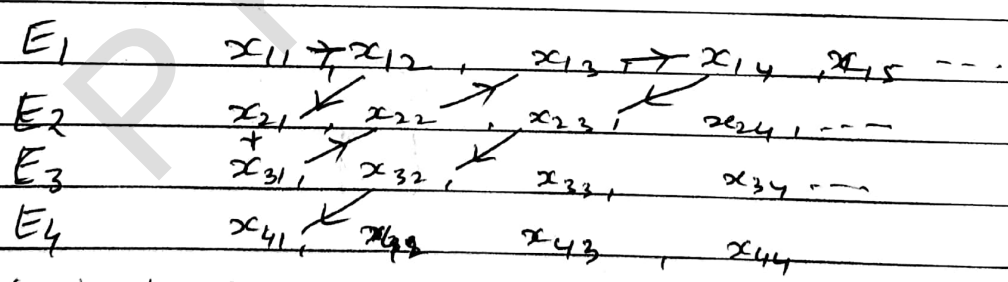 E1 x11 → x12 , x13 , → x14 , x15 ----
E2 x21 , x22 , x23 , x24 , ----
E3 x31 , x32 , x33 , x34 ----
E4 x41 , x43 , x44